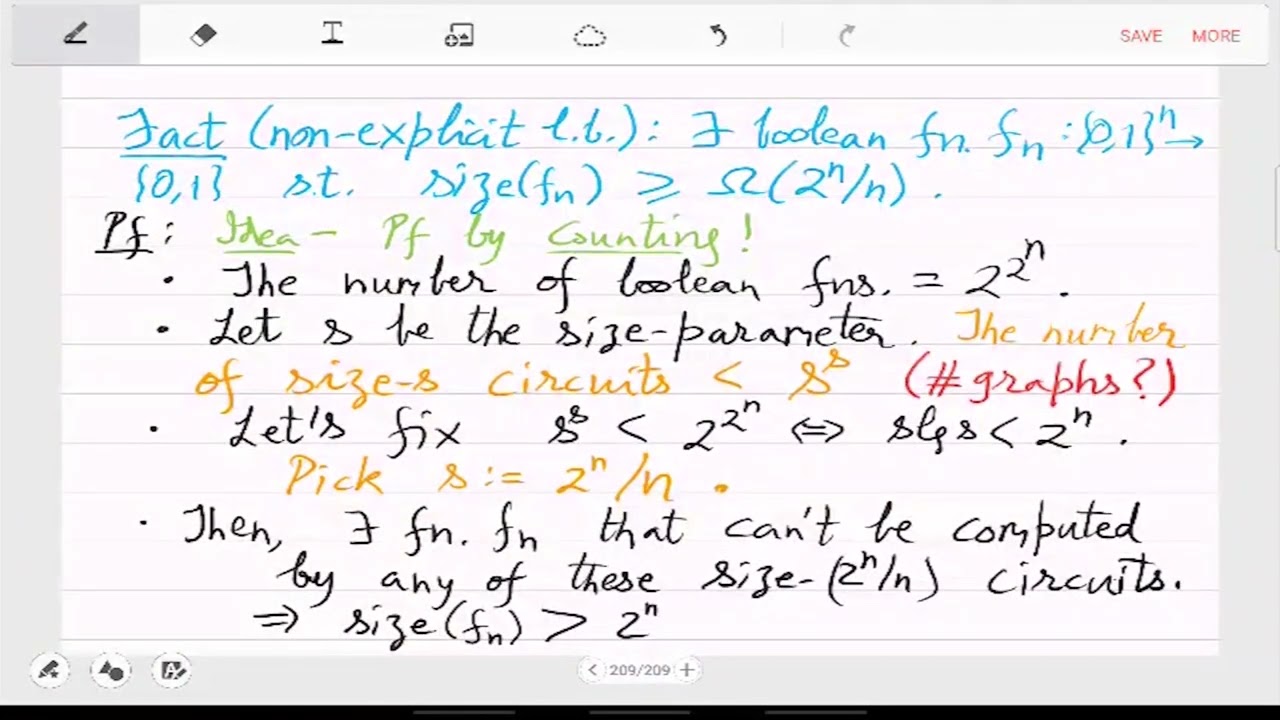 SAVE MORE
Fact (non-explicit l.b.): ∃ boolean fn. fₙ : {0,1}ⁿ →
{0,1} s.t. size(fₙ) ≥ Ω(2ⁿ/n).
Pf: Idea - Pf by counting!
· The number of boolean fns. = 2^2^n.
· Let s be the size-parameter. The number
of size-s circuits < s^s (#graphs?)
· Let's fix s^s < 2^2^n ⇔ s lg s < 2ⁿ.
Pick s := 2ⁿ/n.
· Then, ∃ fn. fₙ that can't be computed
by any of these size-(2ⁿ/n) circuits.
⇒ size(fₙ) > 2ⁿ
209/209